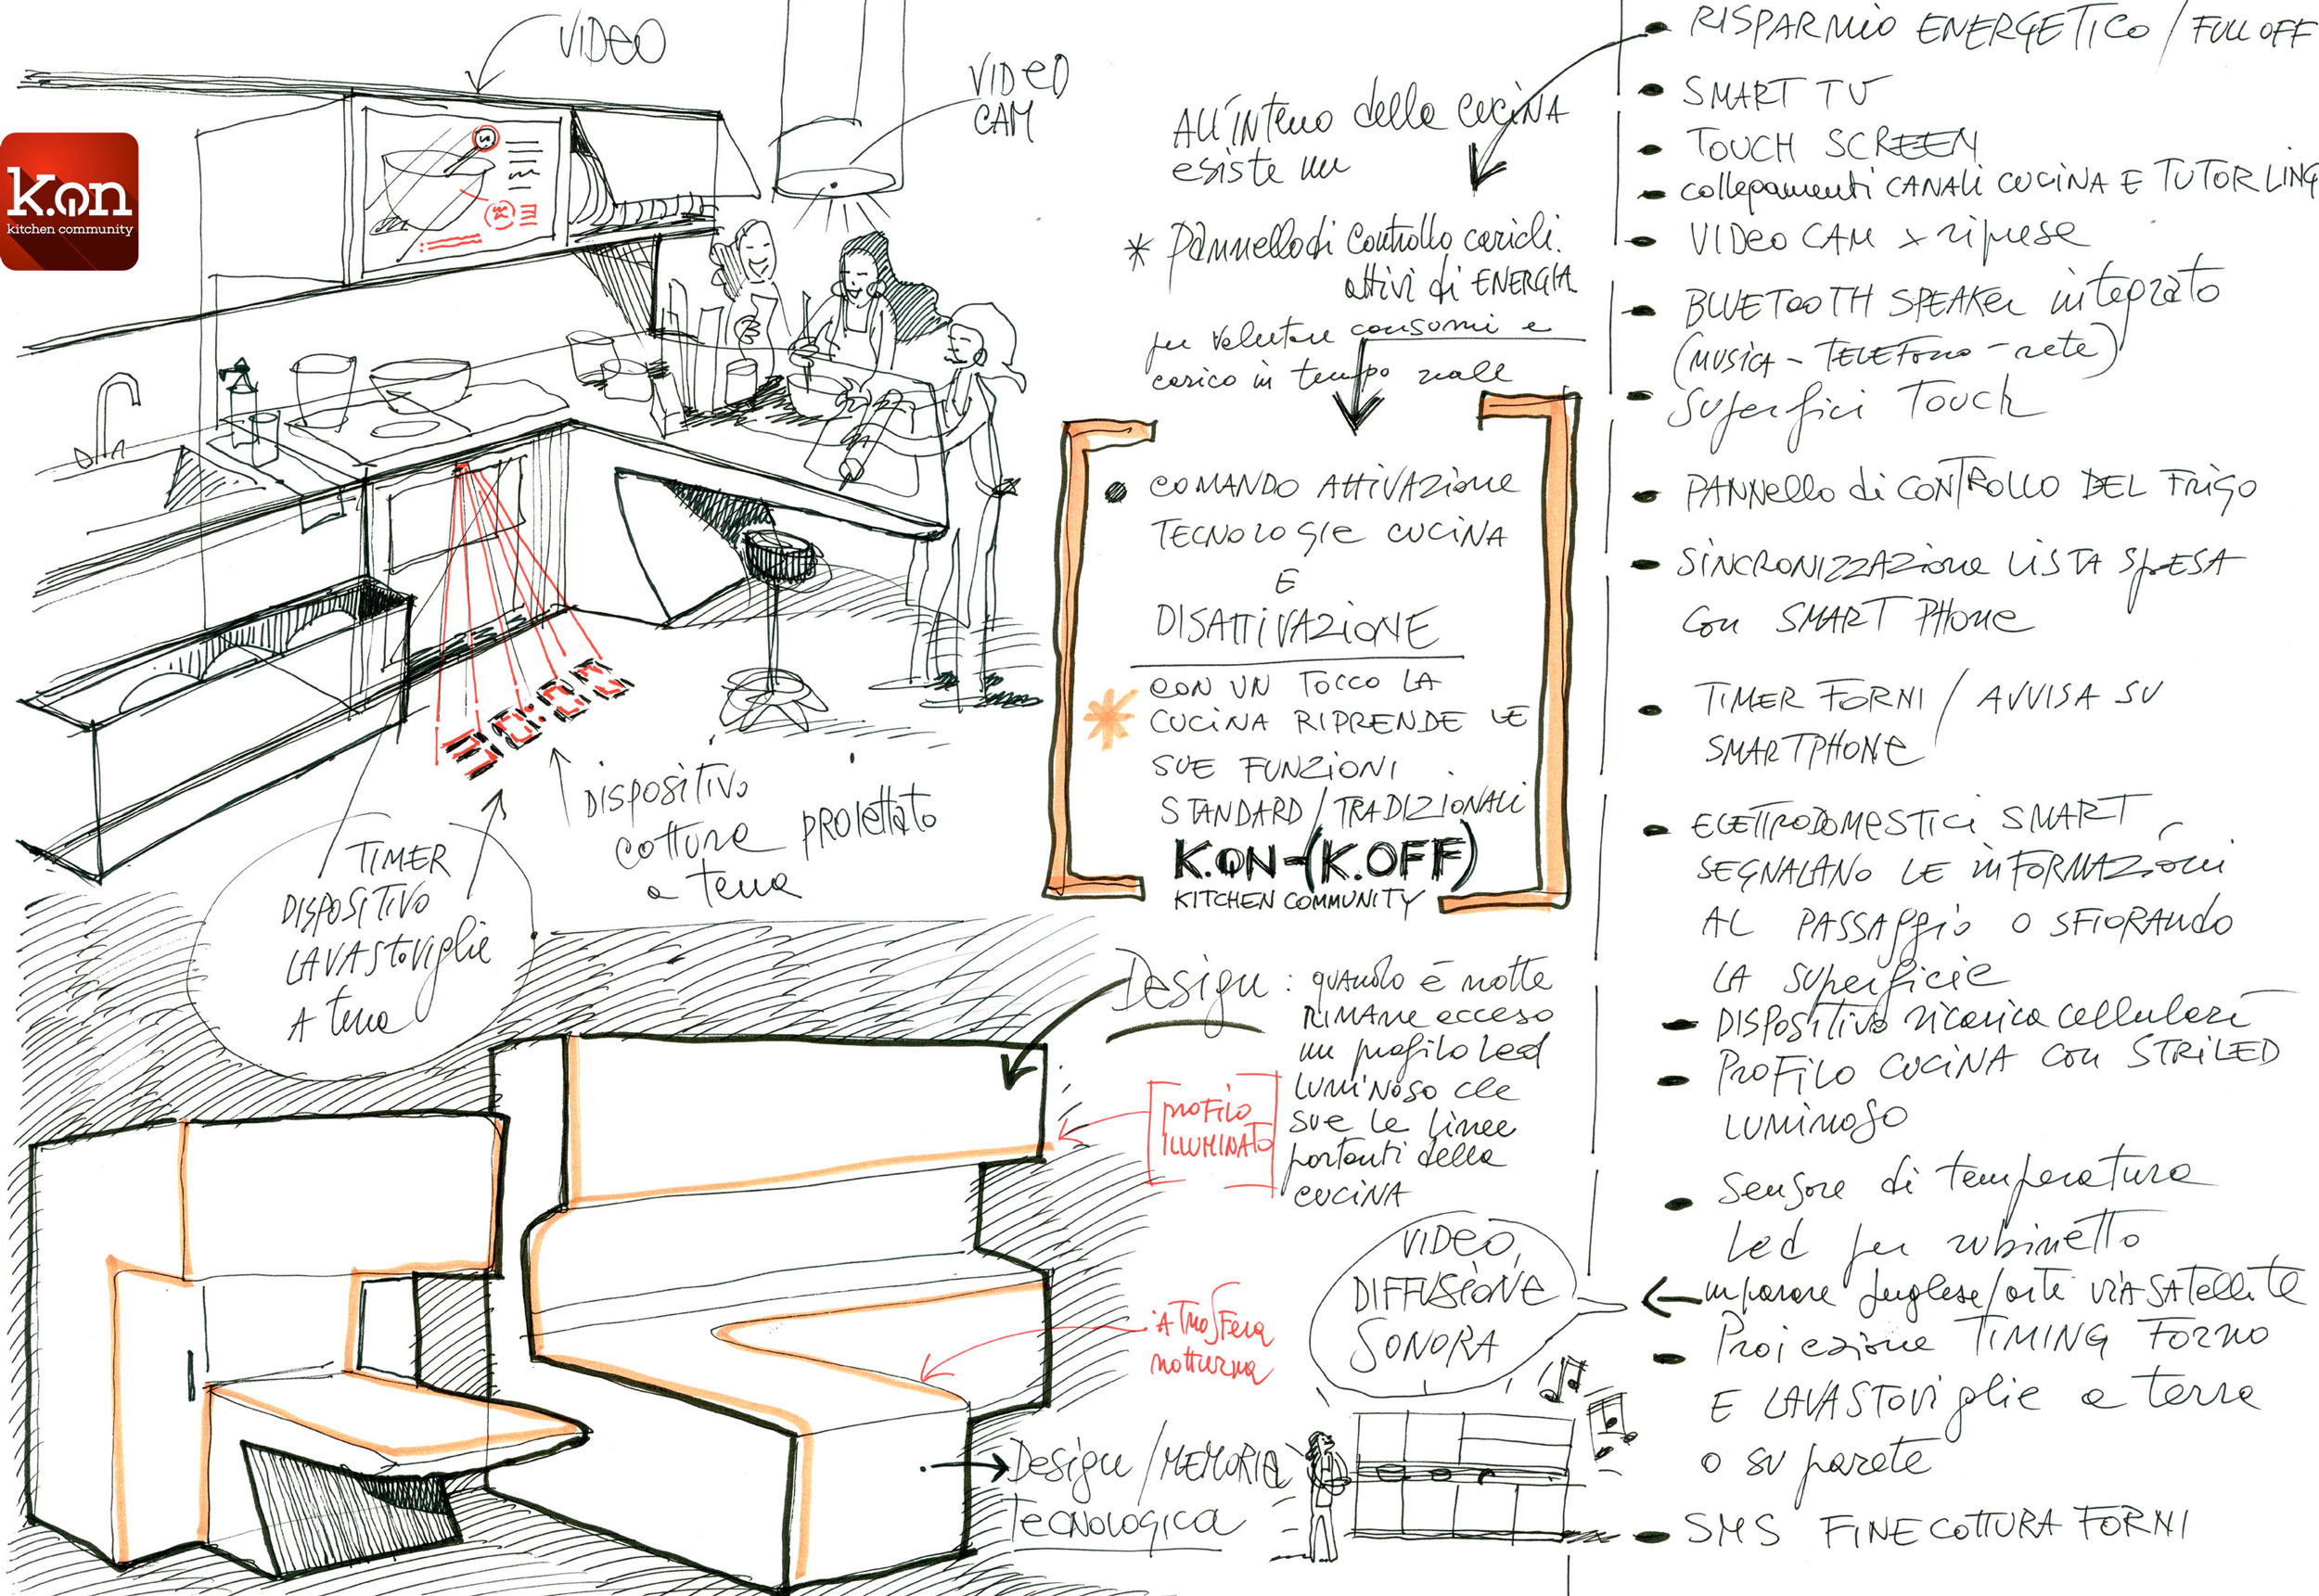 VIDEO
VIDEO
CAM
K.ON
kitchen community
TIMER
DISPOSITIVO
LAVASTOVIGLIE
A terra
DISPOSITIVO
cottura PROIETTATO
a terra
ALL'INTERNO della CUCINA
esiste un
* PANNELLO di controllo carichi
attivi di ENERGIA
per valutare consumi e
carico in tempo reale
COMANDO ATTIVAZIONE
TECNOLOGIE CUCINA
E
DISATTIVAZIONE
CON UN TOCCO LA
CUCINA RIPRENDE LE
SUE FUNZIONI
STANDARD / TRADIZIONALI
K.ON-(K.OFF)
KITCHEN COMMUNITY
Design: QUANDO è notte
RIMANE acceso
un profilo Led
LUMINOSO che
SUE LE linee
portanti della
CUCINA
PROFILO
ILLUMINATO
ATMOSFERA
notturna
Design / MEMORIA
TECNOLOGICA
VIDEO,
DIFFUSIONE
SONORA
RISPARMIO ENERGETICO / FULL OFF
SMART TV
TOUCH SCREEN
collegamenti CANALI CUCINA E TUTORLING
VIDEO CAM x riprese
BLUETOOTH SPEAKER integrato
(MUSICA - TELEFONO - rete)
Superfici Touch
PANNELLO di CONTROLLO DEL FRIGO
SINCRONIZZAZIONE LISTA SPESA
con SMART PHONE
TIMER FORNI / AVVISA SU
SMARTPHONE
ELETTRODOMESTICI SMART
SEGNALANO LE INFORMAZIONI
AL PASSAGGIO O SFIORANDO
LA SUPERFICIE
DISPOSITIVO ricarica cellulari
PROFILO CUCINA con STRILED
LUMINOSO
Sensore di temperatura
Led per rubinetto
imparare Inglese/arte VIA SATELLITE
Proiezione TIMING FORNO
E LAVASTOVIGLIE a terra
o su parete
SMS FINE COTTURA FORNI